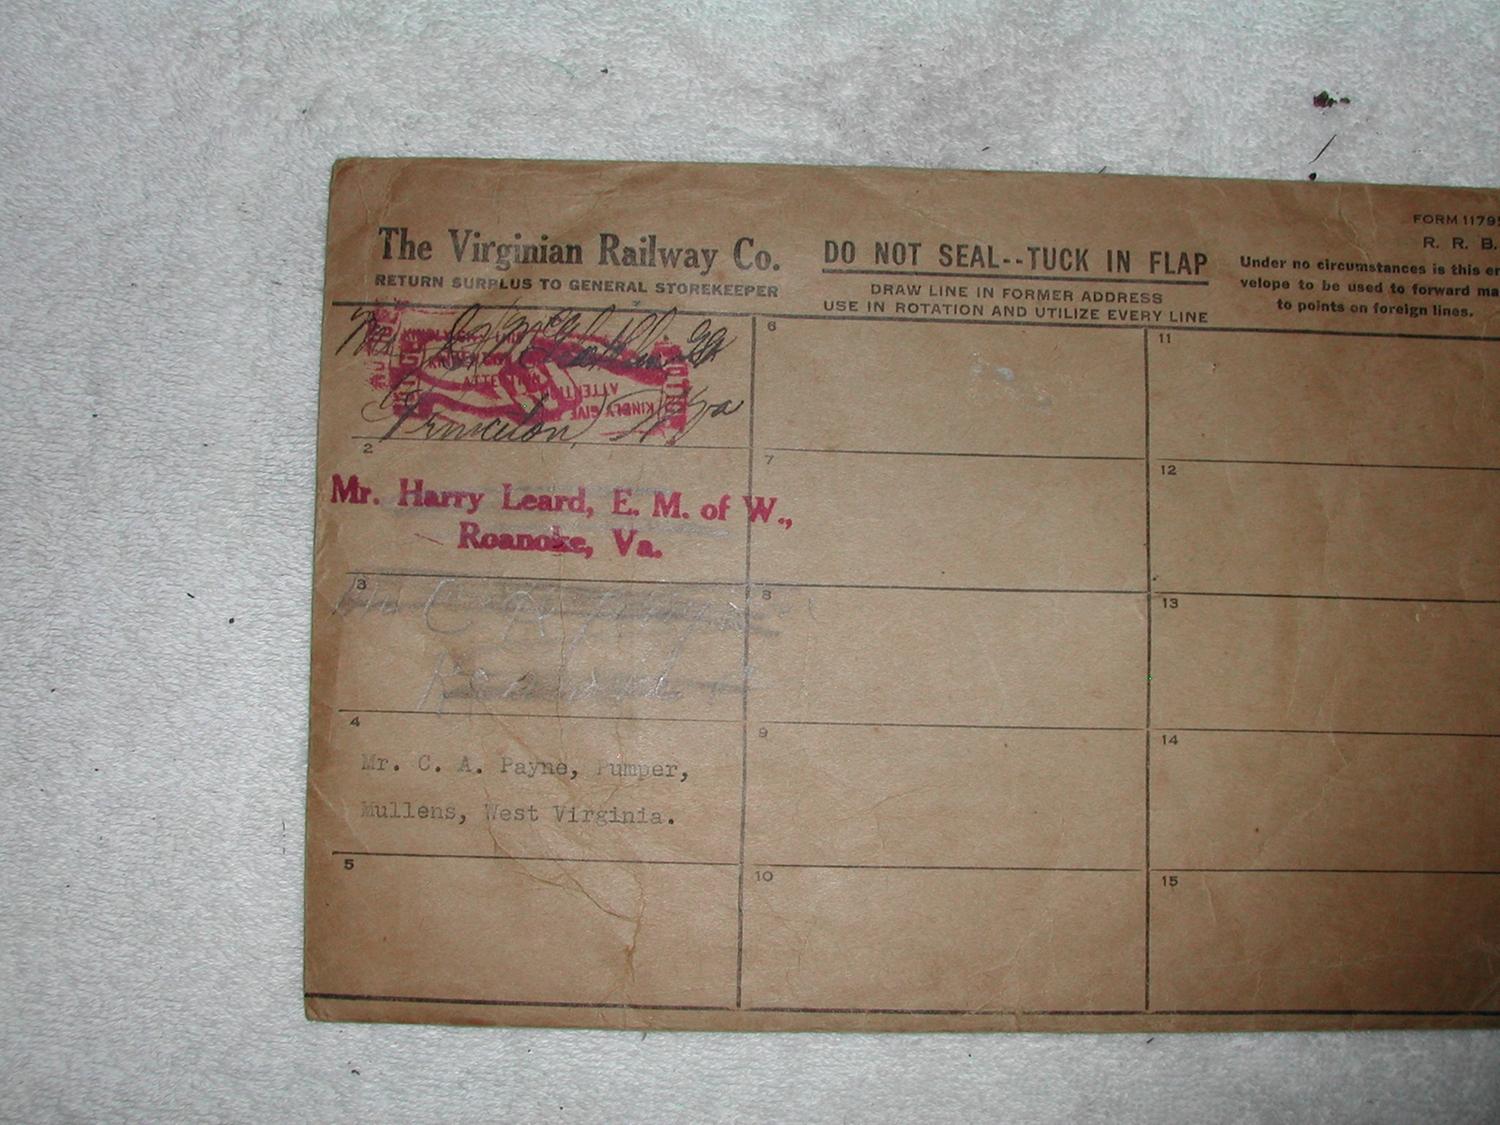 The Virginian Railway Co.
RETURN SURPLUS TO GENERAL STOREKEEPER
DO NOT SEAL--TUCK IN FLAP
DRAW LINE IN FORMER ADDRESS
USE IN ROTATION AND UTILIZE EVERY LINE
FORM 1179
R. R. B.
Under no circumstances is this en
velope to be used to forward ma
to points on foreign lines.
KINDLY GIVE THIS
ATTENTION
ATTENTION
KINDLY GIVE
Princeton, W Va
2
Mr. Harry Leard, E. M. of W.,
Roanoke, Va.
3
4
Mr. C. A. Payne, Pumper,
Mullens, West Virginia.
5
6
7
8
9
10
11
12
13
14
15